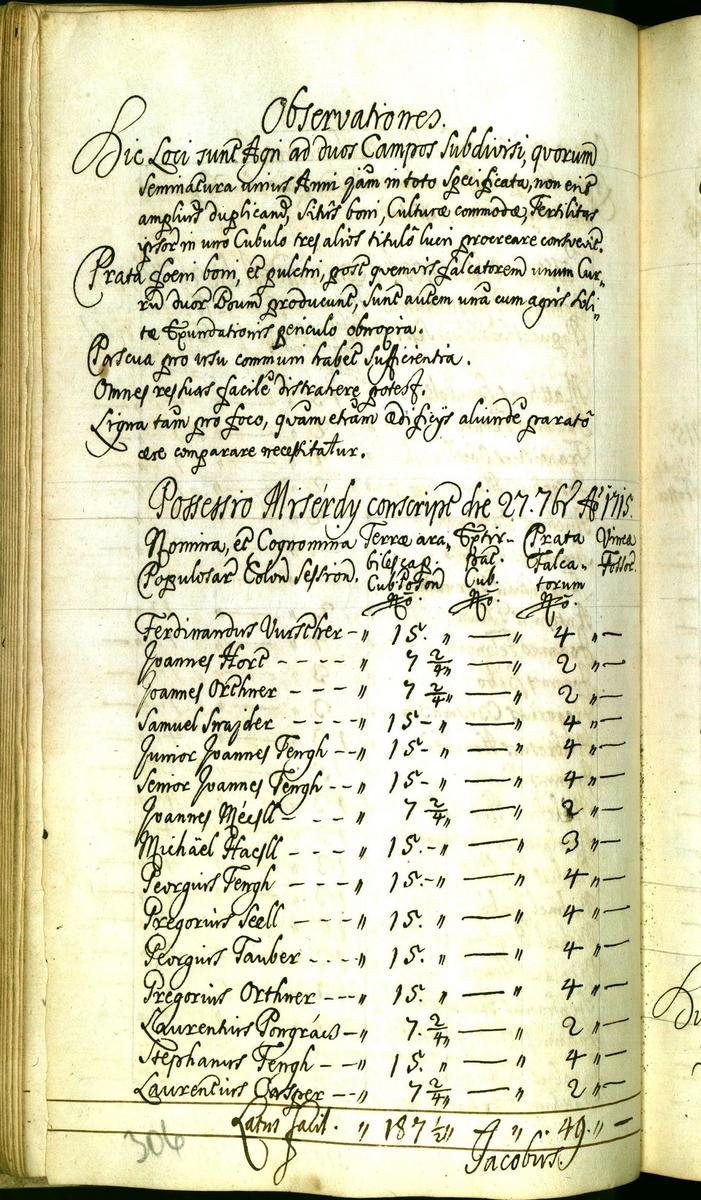 Observationes.
Hic Loci sunt Agri ad duos Campos subdivisi, quorum
seminatura unius Anni jam in toto specificata, non erit
amplius duplicand, sitûs boni, Culturæ commodæ, Fertilitas
ipsor in uno Cubulo tres alios titulô lucri procreare consvevit.
Prata foeni boni, et pulchri, post quemvis falcatorem unum Cur-
rū duor Boum producunt, sunt autem una cum agris soli-
tæ Exundationis periculo obnoxia.
Pascua pro usu communi habet sufficientia.
Omnes res suas facile distrahere potest.
Ligna tam pro foco, quam etiam ædificijs aliunde paratô
ære comparare necessitatur.
Possessio Misérdy conscript die 27. 7br Aō 1715.
Nomina, et Cognomina Terræ ara- Extir- Prata Vinea
Populosar Colon Session. biles cap. pat. Falca- Fossor.
Cub. Poson Cub. torum
No. No. No.
Ferdinandus Vurscher - „ 15. „ — „ 4 „ —
Joannes Hort - - - - „ 7 2/4 „ — „ 2 „ —
Joannes Orthner - - - „ 7 2/4 „ — „ 2 „ —
Samuel Snajder - - - „ 15 - „ — „ 4 „ —
Junior Joannes Fengh - - „ 15 - „ — „ 4 „ —
Senior Joannes Fengh - - „ 15 - „ — „ 4 „ —
Joannes Méesll - - - „ 7 2/4 „ — „ 2 „ —
Michäel Haesll - - - „ 15. - „ — „ 3 „ —
Georgius Fengh - - - „ 15. - „ — „ 4 „ —
Gregorius Seell - - - - „ 15. „ — „ 4 „ —
Georgius Tauber - - - - „ 15. „ — „ 4 „ —
Gregorius Orthner - - - „ 15. „ — „ 4 „ —
Laurentius Pongrács - „ 7. 2/4 „ — „ 2 „ —
Stephanus Fengh - - „ 15. „ — „ 4 „ —
Laurentius Casper - - „ 7 2/4 „ — „ 2 „ —
Latus facit. „ 187 1/2 „ „ 49. „ —
306
Jacobus